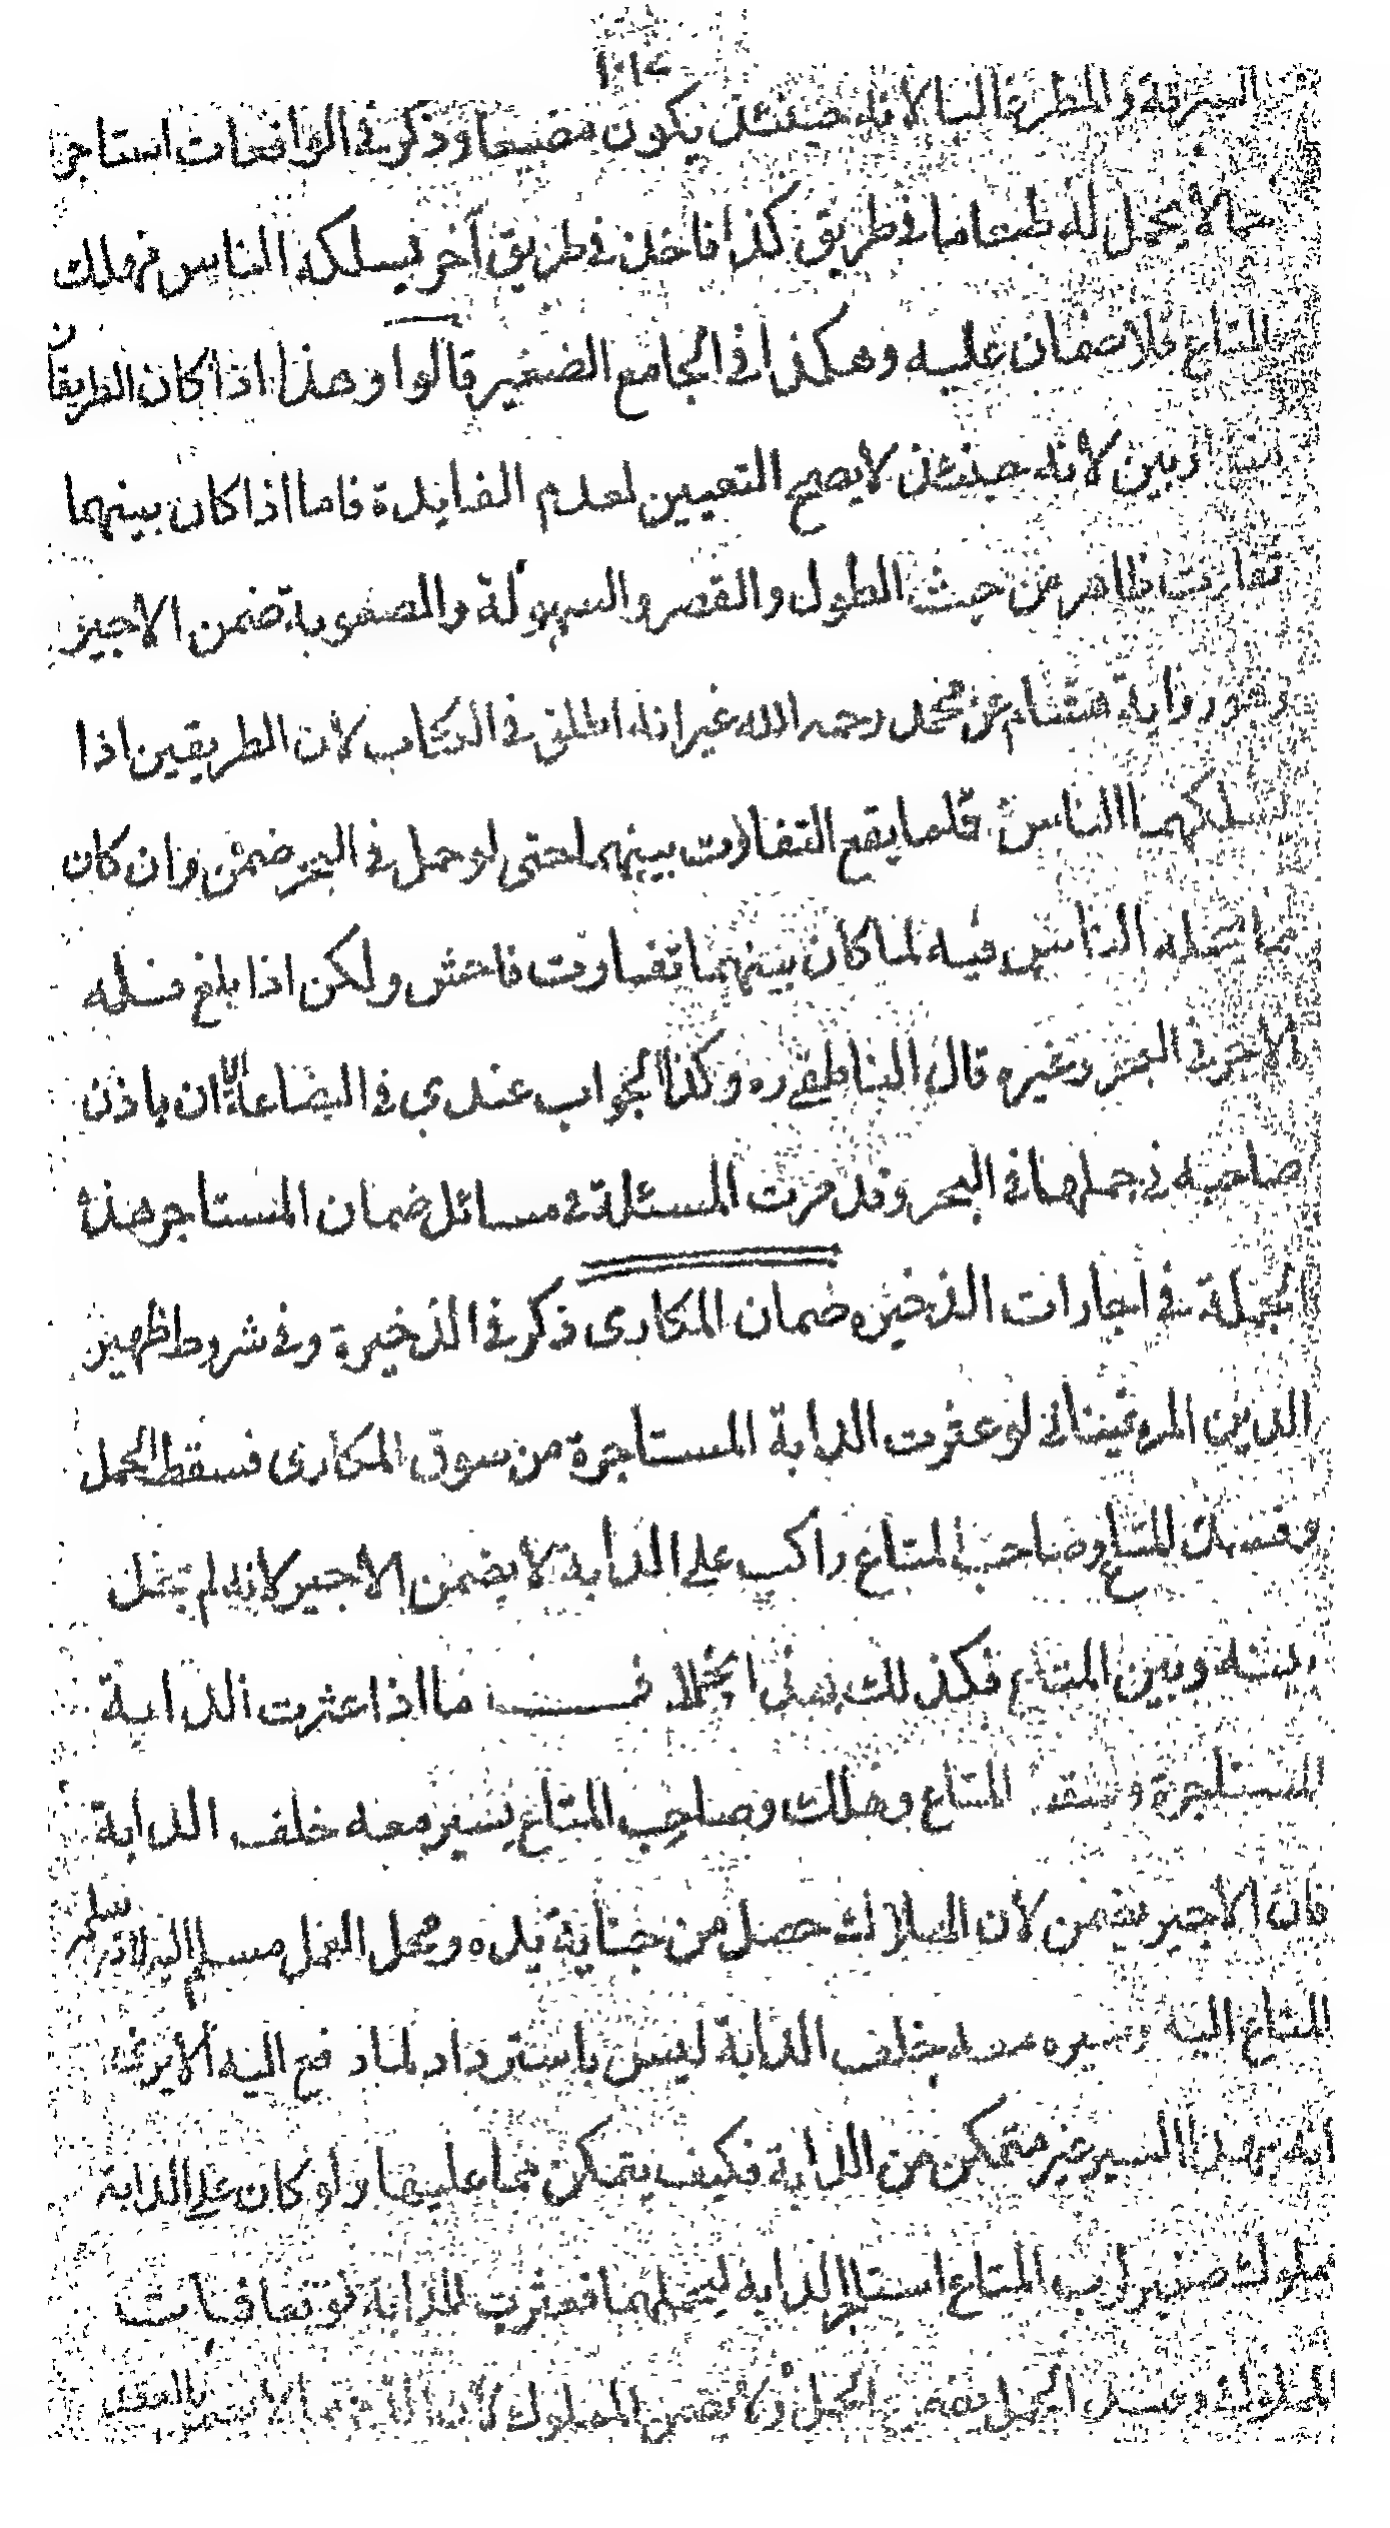 السرقة والمطر غالبا لانه حينئذ يكون مضيعا وذكر في الواقعات استاجر
حمالا يحمل له طعاما في طريق كذا فاخذ في طريق آخر يسلكه الناس فهلك
المتاع فلا ضمان عليه وهكذا في الجامع الصغير قالوا وهذا اذا كان الطريقان
متقاربين لانه حينئذ لا يصح التعيين لعدم الفايدة فاما اذا كان بينهما
تفاوت ظاهر من حيث الطول والقصر والسهولة والصعوبة ضمن الاجير
وهو رواية هشام عن محمد رحمه الله غير انه اطلق في الكتاب لان الطريقين اذا
يسلكهما الناس قلما يقع التفاوت بينهما حتى لو حمل في البحر ضمن وان كان
مما يحمله الناس فيه لما كان بينهما تفاوت فاحش ولكن اذا بلغ فله
الاجر في البحر وغيره قال الناطفي ره وكذا الجواب عندي في البضاعة الا ان ياذن
صاحبه في حملها في البحر وقد مرت المسئلة في مسائل ضمان المستاجر هذه
الجملة في اجارات الذخيره ضمان المكارى ذكر في الذخيرة وفي شروط ظهير
الدين المرغيناني لو عثرت الدابة المستاجرة من سوق المكارى فسقط الحمل
وفسد المتاع وصاحب المتاع راكب على الدابة لا يضمن الاجير لانه لم يخل
بينه وبين المتاع فكذلك بخلاف ما اذا عثرت الدابة
المستاجرة وسقط المتاع وهلك وصاحب المتاع يسير معه خلف الدابة
فان الاجير يضمن لان الهلاك حصل من جناية يده ومحل العمل مسلم اليه لانه سلم
المتاع اليه وسيره معه خلف الدابة ليس باسترداد لما دفع اليه الا يرى
انه بهذا السير غير متمكن من الدابة فكيف يتمكن مما عليها ولو كان على الدابة
مملوك صغير لرب المتاع استاجر الدابة ليحملهما فعثرت الدابة فوقعا فمات
المملوك وفسد الحمل يضمن الحمل ولا يضمن المملوك لان